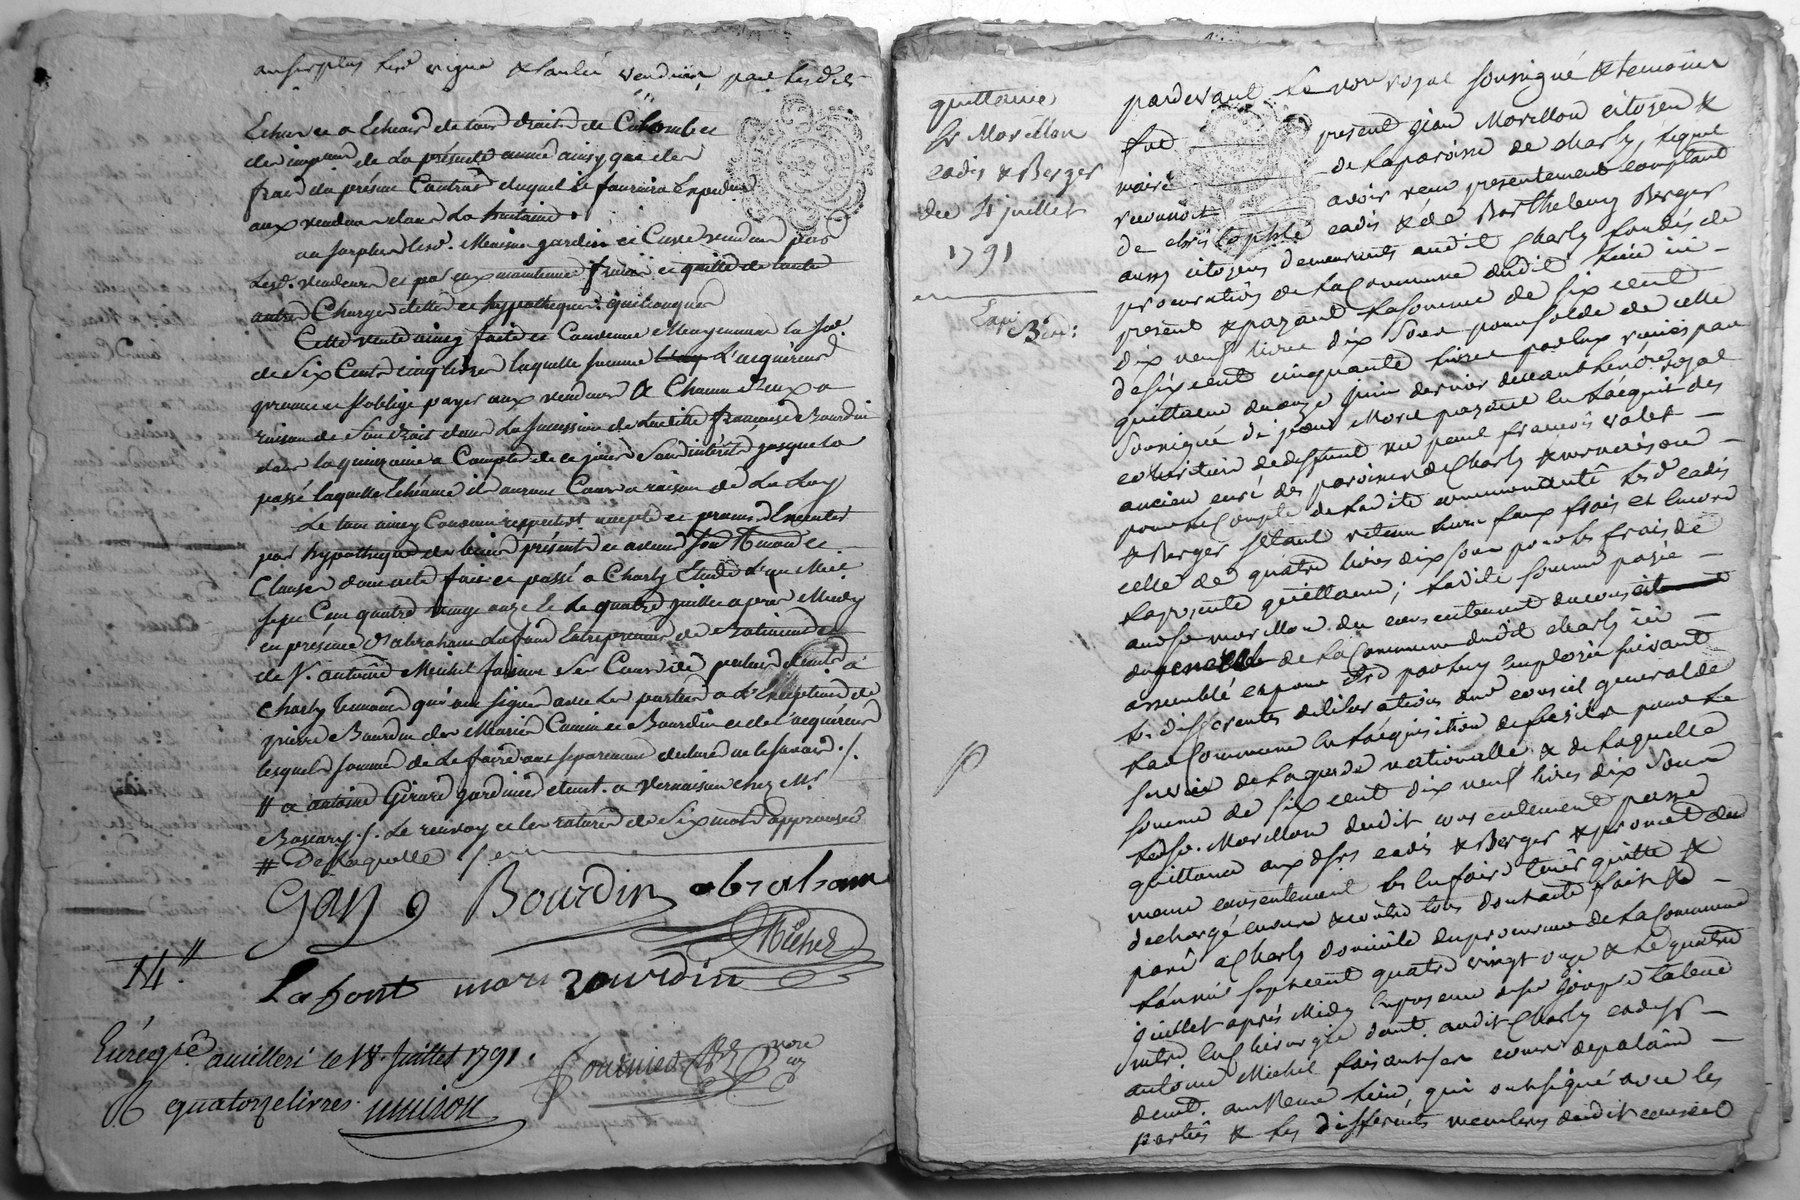 au surplus lesd. vigne & vendües par lesdits
Echus et a Echeoir de tous droits de
des impots de La présente année ainsy que des
frais du présent Contrat duquel il fournira Expedition
aux vendeurs dans La huitaine.
au surplus lesd. Maison jardin et Cuve vendus par
Lesd. vendeurs et par eux maintenus francs et quitte de toutes
autres Charges dettes et hypotheques quelconques
Cette vente ainsy faite et Convenue Moyennant la so.
de Six Cents cinq livres laquelle somme L'acquéreur
promet et s'oblige payer aux vendeurs A Chacun d'eux a
raison de Son droit dans La succession de Ladite françoise Bourdin
dans la quinzaine a Compter de ce jour Sans intérêts jusques la
passé laquelle Echéance ils auront Cours a raison de La Loy
Le tout ainsy Convenu respectivt. accepté et promis d'Executer
par hypotheque de biens présents et avenir
Clauses dont acte fait et passé a Charly Etude L'an Mil
sept Cent quatre vingt onze & Le quatre juillet après Midy
en présence d'abraham Lafont Entrepreneur de Batiments
de S. antoine Michel faisant Ses Cours de palais demts. a
Charly temoins qui ont signés avec Les parties a L'Exception de
pierre Bourdin des Mariés Camin et Bourdin et de l'acquéreur
lesquels sommés de Le faire ont séparement declaré ne le savoir ./.
# a antoine Girard jardinier demt. a Vernaison chez Mr.
Boscary ./. Le renvoy et les ratures de Six mots approuvés
# De Laquelle ./.
Gay Bourdin abraham
Michel
14.#
Lafont mari Bourdin
Enrégté. a millery le 18. Juillet 1791.
quatorze livres.
Fournier
nore
quittance
Sr Morillon
cadis & Berger
du 4 juillet
1791
Expé
pardevant Le nore royal soussigné & temoins
fut present jean Morillon citoyen &
maire de La paroisse de charly, Lequel
reconnoit avoir reçu presentement comptant
de christophle cadis & de Barthelemy Berger
aussy citoyens demeurants audit Charly fondés de
procuration de La Commune dudit Lieu ici
present & payant La somme de six cent
dix neuf livres dix sous pour solde de celle
de six cent cinquante livres par Eux reçüe par
quittance du onze juin dernier devant Le nore royal
soussigné de jean Morel payant En L'acquit des
heritiers de deffunt mre paul françois valet
ancien curé des paroisses de Charly & vernaison
pour Le Compte de Ladite communauté Lesd. cadis
& Berger s'étant retenu leurs faux frais et Encore
celle de quatre livres dix sous pour les frais de
La presente quittance; Ladite somme payée
audit sr Morillon du consentement du conseil
de La Commune dudit charly ici
assemblé et pour Etre par Luy Employée suivant
les differentes deliberations dud conseil general de
Lad Commune En L'acquisition de fusils pour Le
service de La garde nationalle & de Laquelle
somme de six cent dix neuf livres dix sous
Led sr. Morillon dudit consentement passe
quittance aux dits cadis & Berger & promet du
meme consentement les En faire tenir quitte &
dechargé envers & contre tous dont acte fait &
passé a Charly domicile du procureur de La Commune
L'an mil sept cent quatre vingt onze & Le quatre
juillet après Midy En presence de sr
Mtre En chirurgie demt. audit Charly et de sr
antoine Michel faisant ses cours de palais
demt. au Meme Lieu, qui ont signé avec Les
parties & Les differents membres dudit conseil